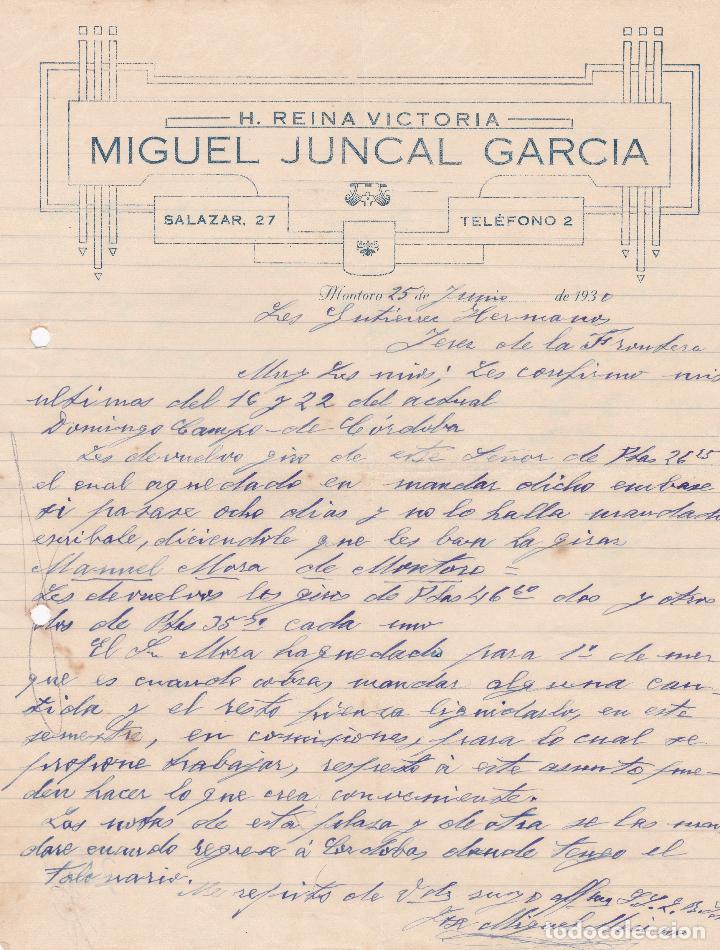 H. REINA VICTORIA
MIGUEL JUNCAL GARCIA
SALAZAR, 27
TELÉFONO 2
Montoro 25 de Junio de 1930
Sres Gutierrez Hermanos
Jerez de la Frontera
Muy Sres mios; Les confirmo mis
ultimas del 16 y 22 del actual
Domingo Campo-de-Córdoba
Les devuelvo giro de este Señor de Ptas 26 25
el cual a quedado en mandar dicho embase
si pasase ocho dias y no lo halla mandado
escribale, diciendole que les ban ha girar
Manuel Mora de Montoro =
Les devuelvos los giros de Ptas 46 60 dos y otros
dos de Ptas 35 50 cada uno
El Sr Mora ha quedado para 1º de mes
que es cuando cobra, mandar alguna can-
tida y el resto piensa liquidarlo, en este
semestre, en comisiones, para lo cual se
propone trabajar, respesto á este asunto pue-
den hacer lo que crea conveniente.
Las notas de esta plaza y de otra se las man
dare cuando regrese á Cordoba, donde tengo el
talonario.
Me repito de Vds suyo affmo
Miguel
todocoleccion